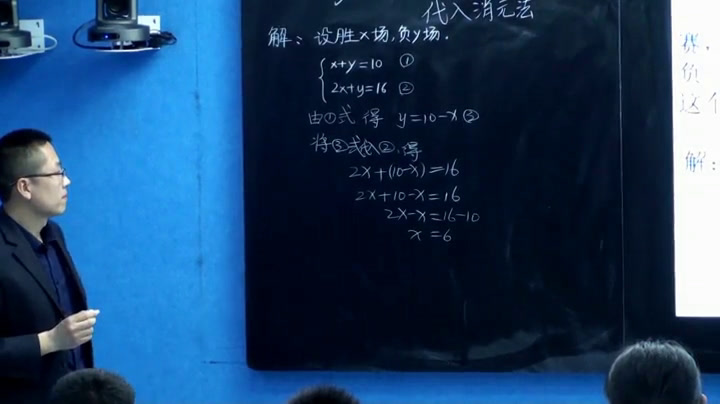 代入消元法
解：设胜x场,负y场.
x+y=10 ①
2x+y=16 ②
由①式 得 y=10-x ③
将③式代入②,得
2x+(10-x)=16
2x+10-x=16
2x-x=16-10
x=6
赛,
负
这个
解：